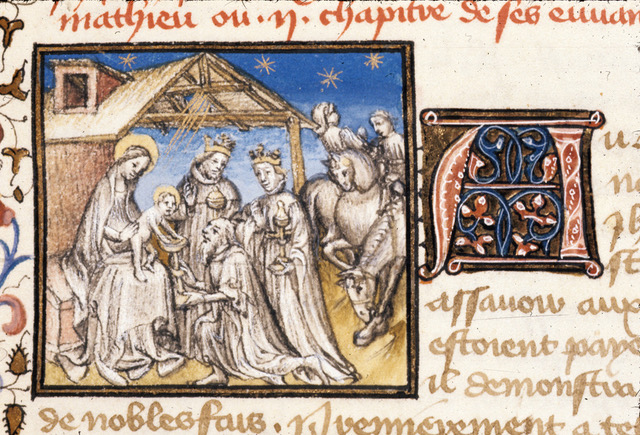 mathieu ou .ij. chapitre de ses euuan
A
assauoir aux
estoient paye
il demonstra
de nobles fais. Premierement a te